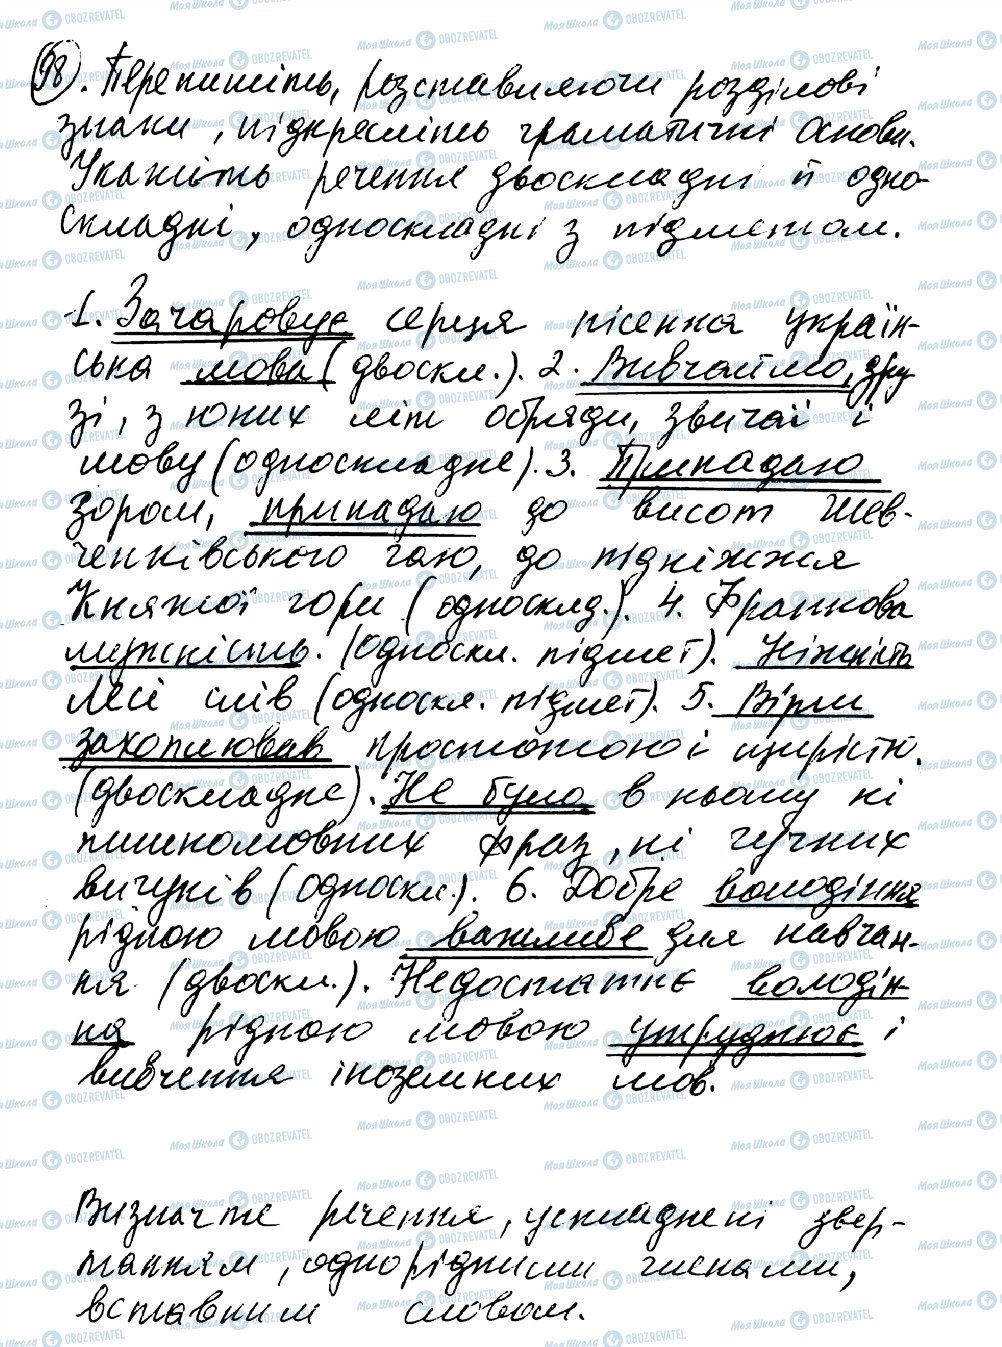 98. Перепишіть, розставляючи розділові
знаки, підкресліть граматичні основи.
Укажіть речення двоскладні й одно-
складні, односкладні з підметом.
1. Зачаровує серця пісенна україн-
ська мова (двоскл.). 2. Вивчаймо, дру
зі, з юних літ обряди, звичаї і
мову (односкладне). 3. Припадаю
зором, припадаю до висот Шев-
ченківського гаю, до підніжжя
Княжої гори (односклд.). 4. Франкова
мужність. (односкл. підмет). Ніжність
Лесі слів (односкл. підмет). 5. Вірш
захоплював простотою і щирістю.
(двоскладне). Не було в ньому ні
пишномовних фраз, ні гучних
вигуків (односкл.). 6. Добре володіння
рідною мовою важливе для навчан-
ня (двоскл.). Недостатнє володін-
ня рідною мовою утруднює і
вивчення іноземних мов.
Визначте речення, ускладнені звер-
танням, однорідними членами,
вставним словом.